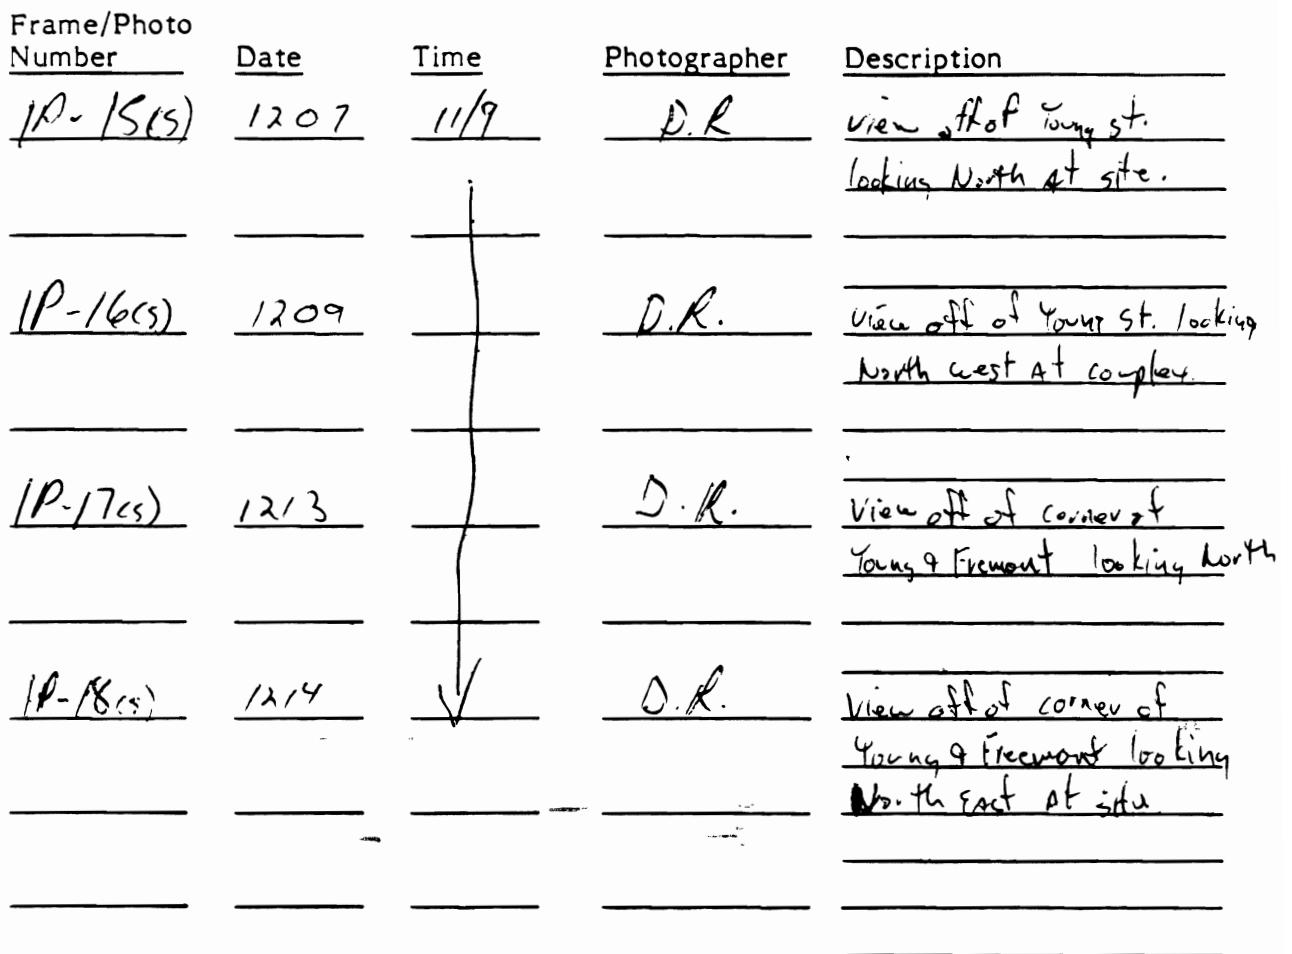 Frame/Photo
Number Date Time Photographer Description
1P-15(s) 1207 11/9 D.R view off of Young st.
looking North At site.
1P-16(s) 1209 D.R. view off of Young St. looking
North west At complex.
1P-17(s) 1213 D.R. View off of corner of
Young & Fremont looking North
1P-18(s) 1214 D.R. View off of corner of
Young & Freemont looking
North East At site.